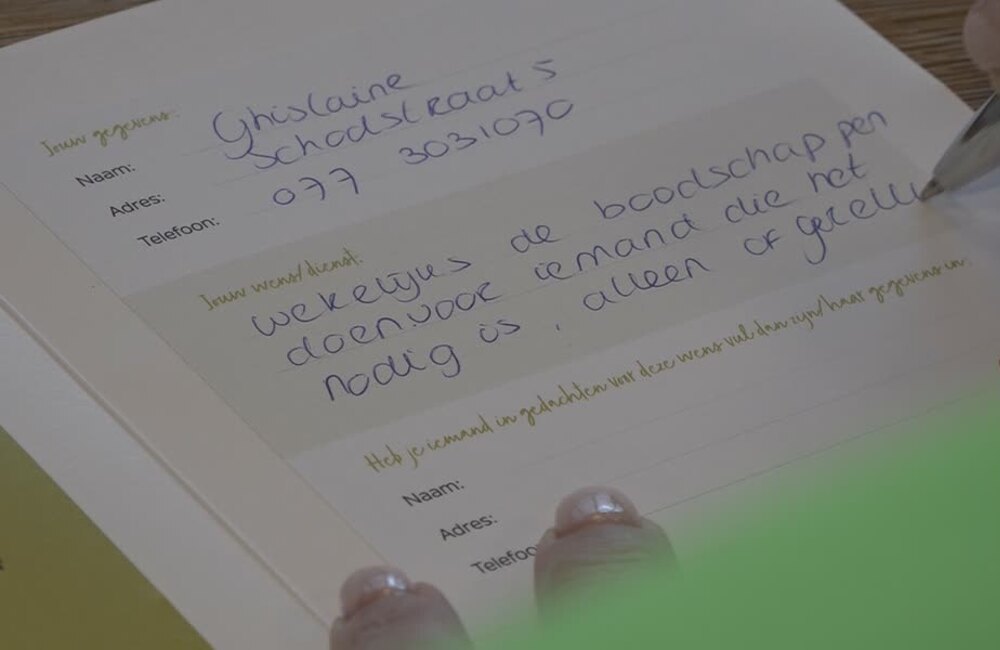 Jouw gegevens:
Naam: Ghislaine
Adres: Schoolstraat 5
Telefoon: 077 3031070
Jouw wens/dienst:
wekelijks de boodschappen
doen voor iemand die het
nodig is, alleen of
Heb je iemand in gedachten voor deze wens vul dan zijn/haar gegevens in:
Naam:
Adres:
Telefoo